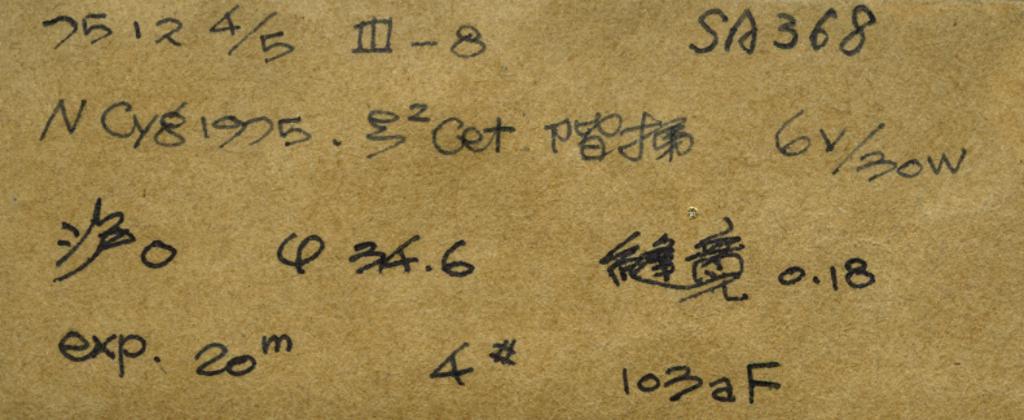 7512 4/5 III-8 SA368
N Cyg 1975. ξ² Cet 階梯 6V/30W
沪0 φ 34.6 縫寬 0.18
exp. 20ᵐ 4# 103aF